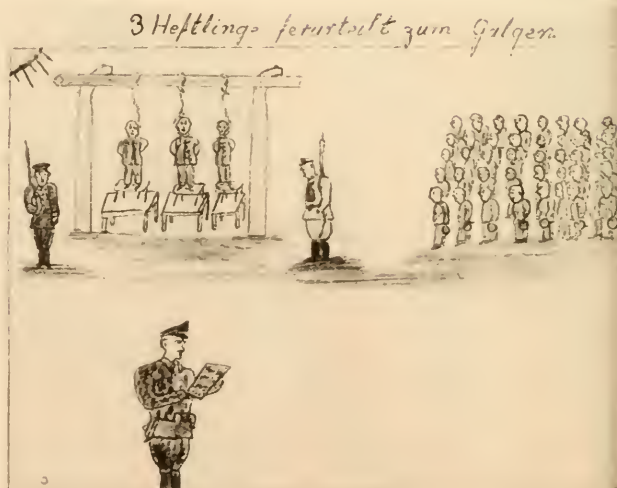 3 Heftlinge ferurteilt zum Galgen.